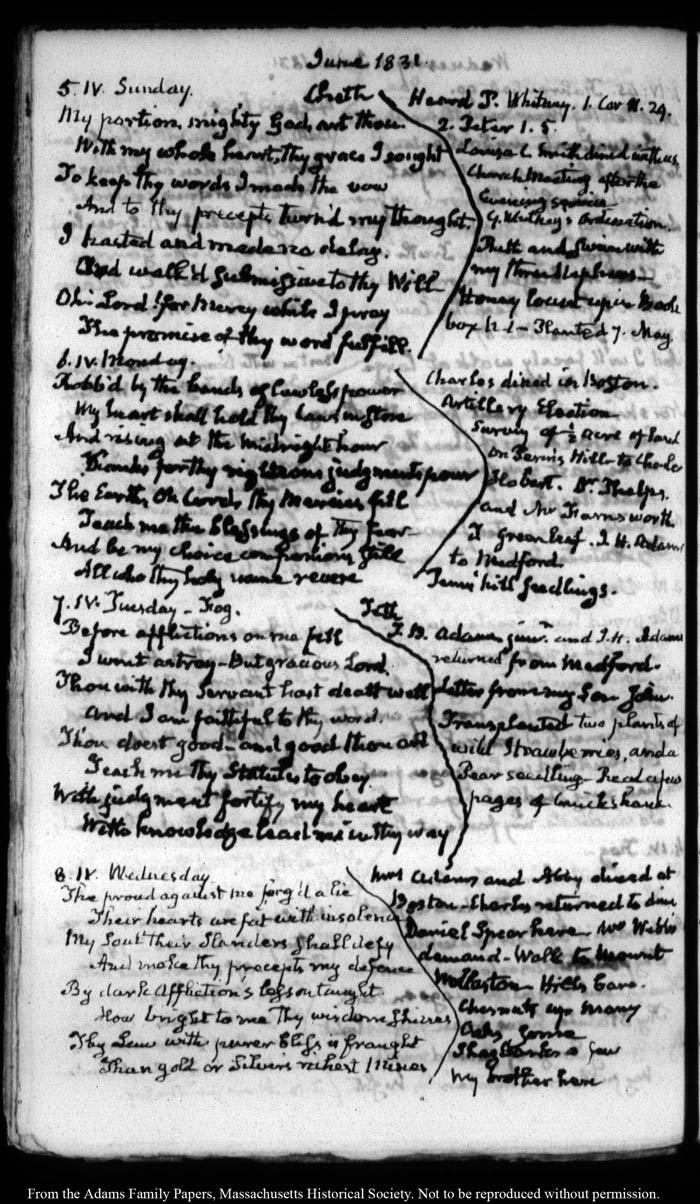 June 1831
5. IV. Sunday.
Cheth
My portion, mighty God, art thou.
With my whole heart, thy grace I sought
To keep thy words I made the vow
And to thy precepts turn'd my thought.
I hasted and made no delay.
And walk'd submissive to thy Will
Oh! Lord! for Mercy while I pray
The promise of thy word fulfill.
Heard P. Whitney. 1. Cor
2. Peter 1. 5.
Louisa C. Smith dined with us
Church Meeting after the
Evening service
G. Whitney's ordination.
and Swam with
my three Nephews
Honey locust up in
box n 1 - Planted 7. May
6. IV. Monday.
Robb'd by the bands of lawless power
My heart shall hold thy law in store
And rising at the midnight hour
Thanks for thy righteous judgments pour
The Earth, Oh Lord, thy Mercies fill
Teach me the blessings of thy fear
And be my choice companions still
All who thy holy name revere
Charles dined in Boston.
Artillery Election
Survey of ½ acre of land
on Penns Hill to Charles
Hobart. Dr. Phelps.
and Mr Farnsworth
T Greenleaf. J. H. Adams
to Medford.
Penns hill seedlings.
7. IV. Tuesday - Fog.
Teth
Before afflictions on me fell
I went astray - But gracious Lord.
Thou with thy Servant hast dealt well
And I am faithful to thy word.
Thou doest good - and good thou art
Teach me thy Statutes to obey.
With judgment fortify my heart
With knowledge lead me in thy way
T. B. Adams junr. and J. H. Adams
returned from Medford.
Letter from my Son John.
Transplanted two plants of
wild Strawberries, and a
Pear seedling - Read a few
pages of Cruikshank.
8. IV. Wednesday
The proud against me forg'd a lie
Their hearts are fat with insolence
My Soul their Slanders shall defy
And make thy precepts my defence
By dark Affliction's lesson taught
How bright to me thy wisdom shines
Thy Law with purer bliss is fraught
Than gold or Silver's richest Mines
Mrs Adams and Abby dined at
Boston - Charles returned to dine
Daniel Spear here Mr Webb's
demand - Walk to Mount
Wollaston - Hills bare.
Chesnuts up many
Oaks some
Shagbarks a few
My brother here
From the Adams Family Papers, Massachusetts Historical Society. Not to be reproduced without permission.